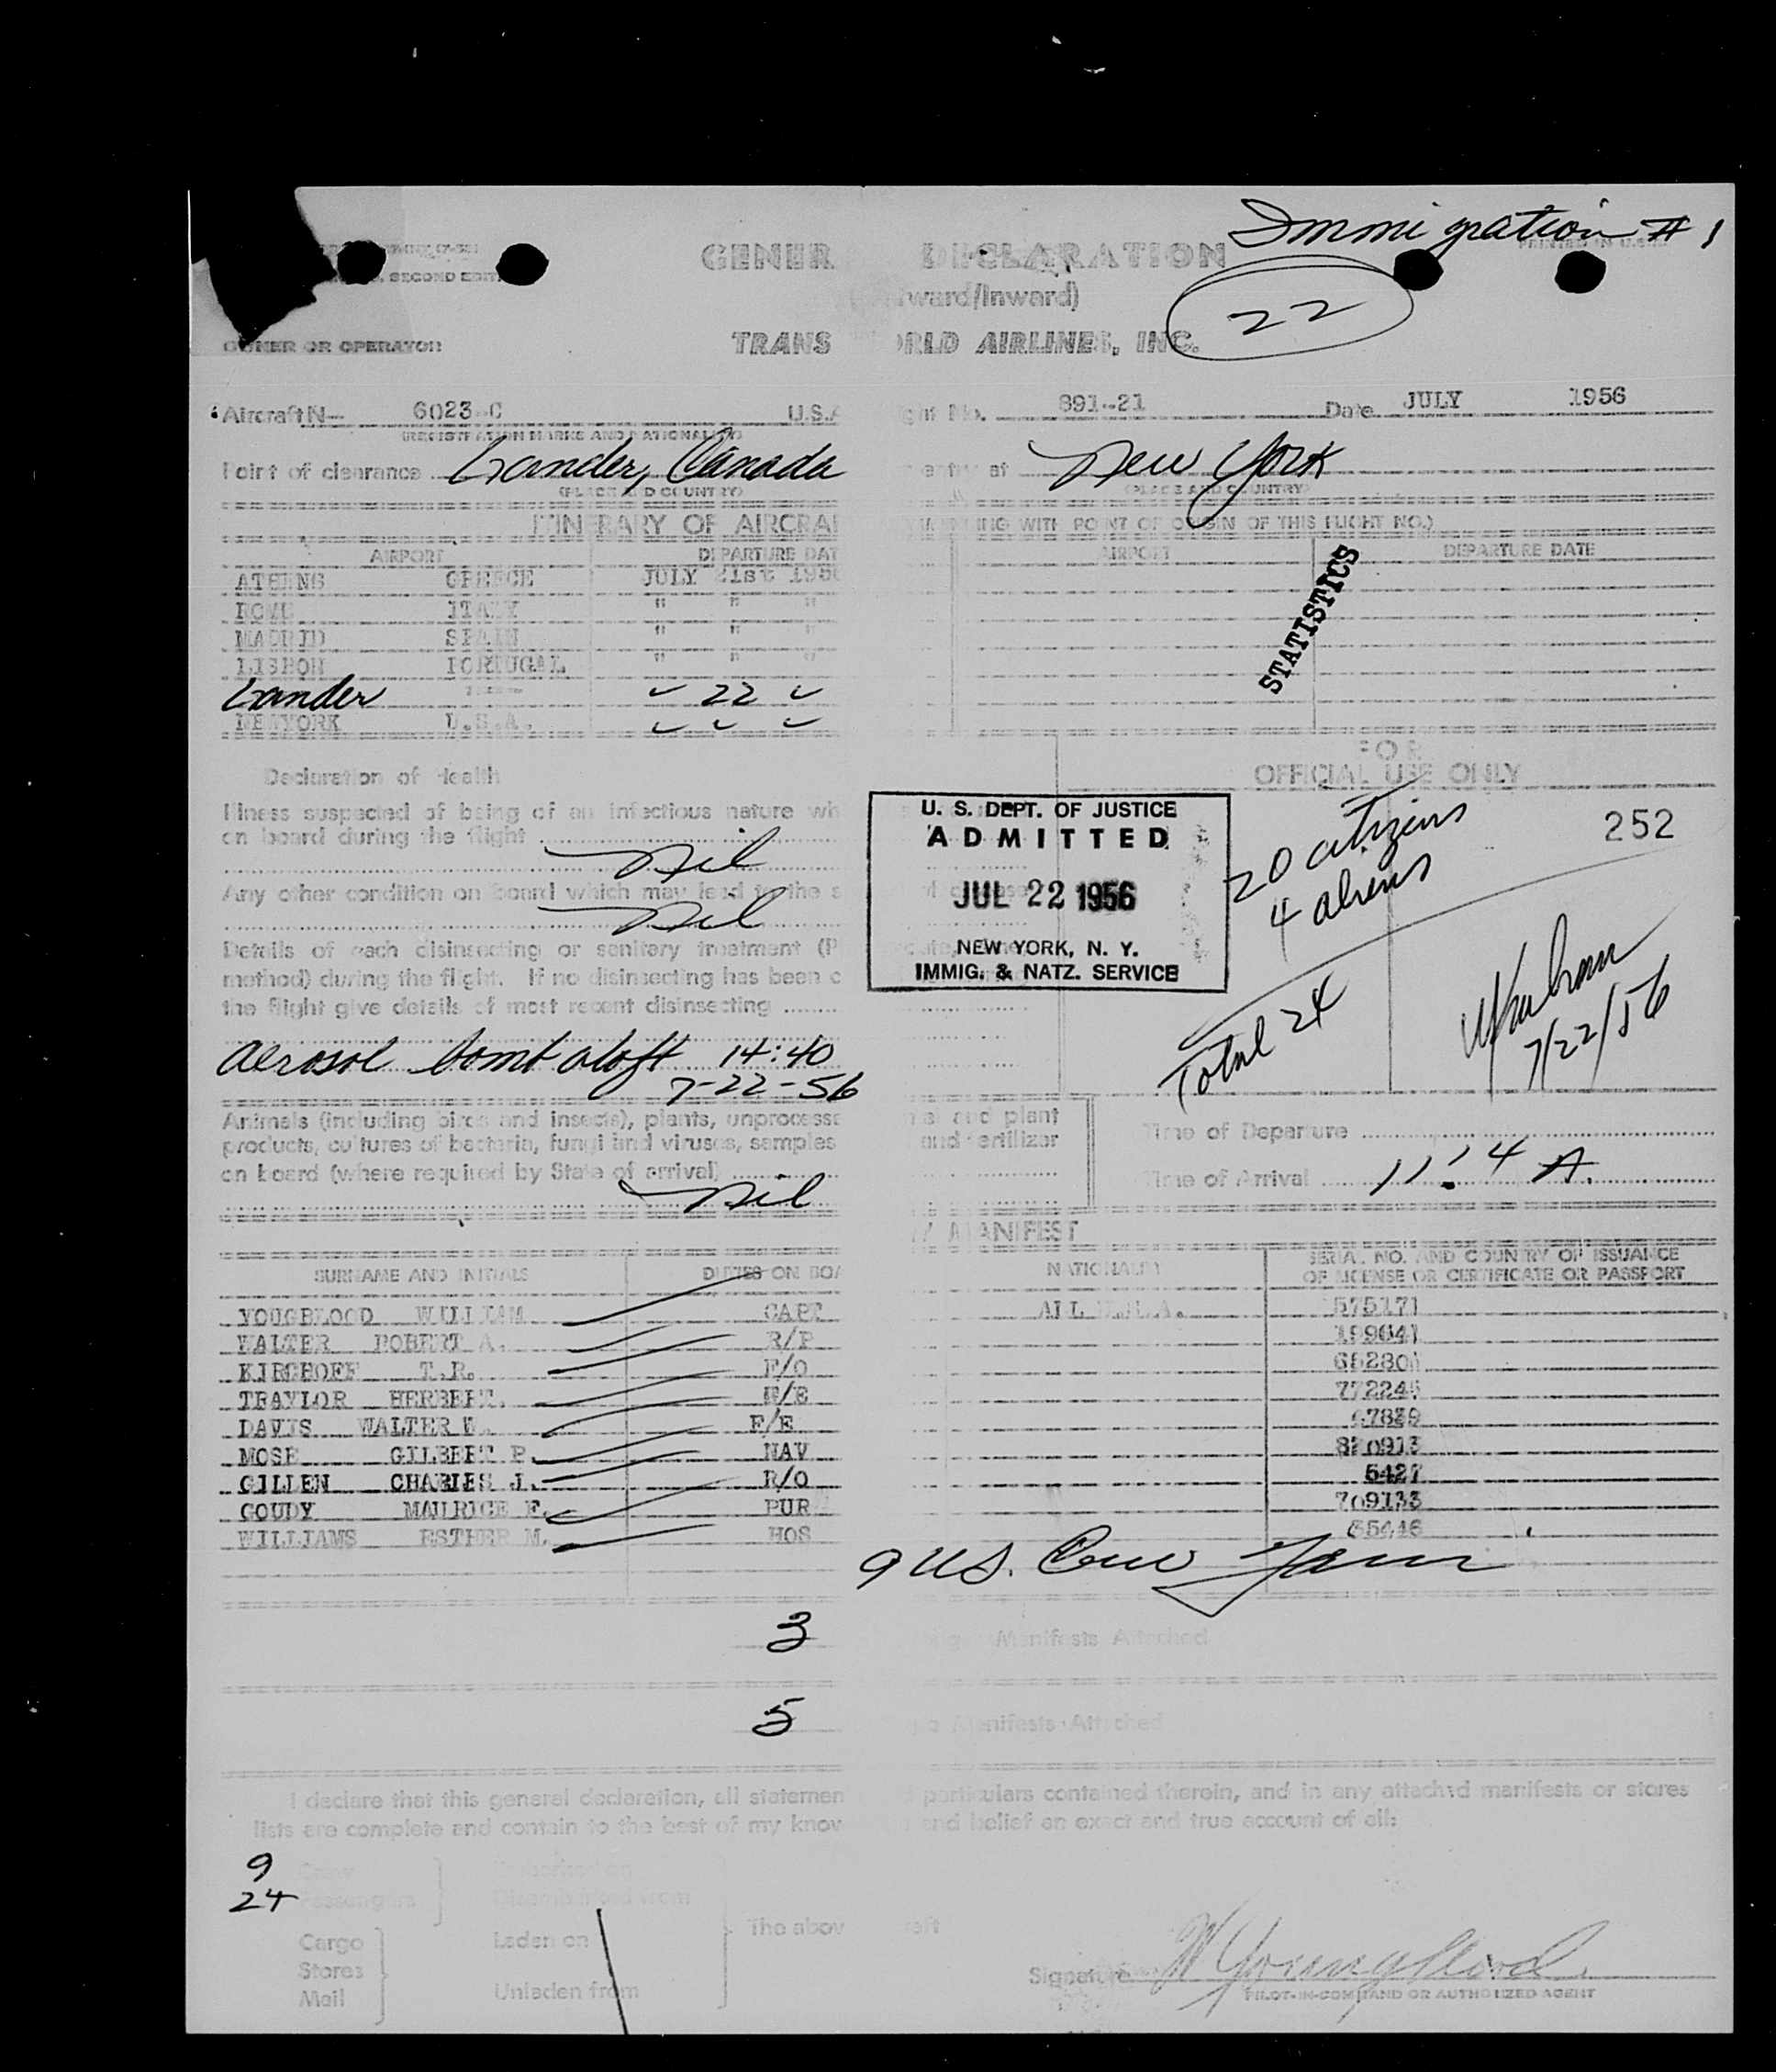 Immigration # 1
PRINTED IN U.S.A.
SECOND EDIT
GENER DECLARATION
ward/Inward)
22
OWNER OR OPERATOR
TRANS ORLD AIRLINES, INC.
Aircraft N- 6023-C U.S.A ght No. 891-21 Date JULY 1956
(REGISTRATION MARKS AND NATIONALITY)
Point of clearance Gander, Canada entry at New York
(PLACE AND COUNTRY) (PLACE AND COUNTRY)
ITINERARY OF AIRCRA NING WITH POINT OF ORIGIN OF THIS FLIGHT NO.)
AIRPORT DEPARTURE DAT AIRPORT DEPARTURE DATE
ATHENS GREECE JULY 21st 195
ROME ITALY " " "
MADRID SPAIN " " "
LISBON PORTUGAL " " "
STATISTICS
Gander ✓ 22 ✓
NEWYORK U.S.A. ✓ ✓ ✓
FOR
OFFICIAL USE ONLY
Declaration of Health
Illness suspected of being of an infectious nature wh
on board during the flight
nil
Any other condition on board which may lead to the s
nil
Details of each disinsecting or sanitary treatment (P
method) during the flight. If no disinsecting has been c
the flight give details of most recent disinsecting
Aerosol bomb aloft 14:40
7-22-56
U. S. DEPT. OF JUSTICE
ADMITTED
JUL 22 1956
NEW YORK, N. Y.
IMMIG. & NATZ. SERVICE
252
20 citizens
4 aliens
Total 24
7/22/56
Animals (including birds and insects), plants, unprocesse and plant
products, cultures of bacteria, fungi and viruses, samples and fertilizer
on board (where required by State of arrival)
nil
Time of Departure
Time of Arrival 11:14 A.
MANIFEST
SURNAME AND INITIALS DUTIES ON BOA NATIONALITY SERIAL NO. AND COUNTRY OF ISSUANCE
OF LICENSE OR CERTIFICATE OR PASSPORT
YOUGBLOOD WILLIAM CAPT ALL U.S.A. 575171
WALTER ROBERT A. R/P 199641
KIRCHOFF T.R. F/O
TRAYLOR HERBERT. F/E
DAVIS WALTER W. F/E
MOSE GILBERT P. NAV
GILLEN CHARLES J. R/O 5427
GOUDY MAURICE F. PUR 709133
WILLIAMS ESTHER M. HOS
9 U.S.
3 Manifests Attached
5 Manifests Attached
I declare that this general declaration, all statemen particulars contained therein, and in any attached manifests or stores
lists are complete and contain to the best of my know and belief an exact and true account of all:
9 Crew Embarked on
24 Passengers Disembarked from
The abov raft
Cargo Laden on
Stores
Mail Unladen from
Signature W Youngblood
PILOT-IN-COMMAND OR AUTHORIZED AGENT